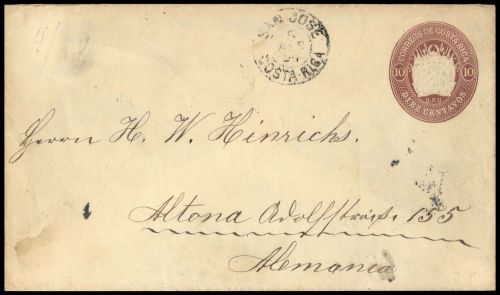 SAN JOSÉ
COSTA RICA
CORREOS DE COSTA RICA
10 10
U.P.U.
DIEZ CENTAVOS
Herrn H. W. Hinrichs.
Altona Adolfstraße 155
Alemania